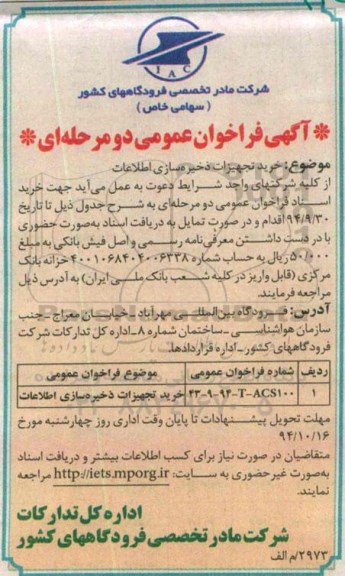 IAC
شرکت مادر تخصصی فرودگاههای کشور
( سهامی خاص )
* آگهی فراخوان عمومی دو مرحله‌ای *
موضوع: خرید تجهیزات ذخیره‌سازی اطلاعات
از کلیه شرکتهای واجد شرایط دعوت به عمل می‌آید جهت خرید
اسناد فراخوان عمومی دو مرحله‌ای به شرح جدول ذیل تا تاریخ
۹۴/۹/۳۰ اقدام و در صورت تمایل به دریافت اسناد به‌صورت حضوری
با در دست داشتن معرفی‌نامه رسمی و اصل فیش بانکی به مبلغ
۵۰/۰۰۰ ریال به حساب شماره ۴۰۰۱۰۶۸۴۰۴۰۰۶۳۳۸ خزانه بانک
مرکزی (قابل واریز در کلیه شعب بانک ملی ایران) به آدرس ذیل
مراجعه فرمایند.
آدرس: فرودگاه بین‌المللی مهرآباد - خیابان معراج - جنب
سازمان هواشناسی - ساختمان شماره ۸ - اداره کل تدارکات شرکت
فرودگاههای کشور - اداره قراردادها.
ردیف شماره فراخوان عمومی موضوع فراخوان عمومی
۱ ۴۳-۹-۹۴-T-ACS۱۰۰ خرید تجهیزات ذخیره‌سازی اطلاعات
مهلت تحویل پیشنهادات تا پایان وقت اداری روز چهارشنبه مورخ
۹۴/۱۰/۱۶
متقاضیان در صورت نیاز برای کسب اطلاعات بیشتر و دریافت اسناد
به‌صورت غیرحضوری به سایت: http://iets.mporg.ir مراجعه
نمایند.
اداره کل تدارکات
شرکت مادر تخصصی فرودگاههای کشور
۲۹۷۳/م الف